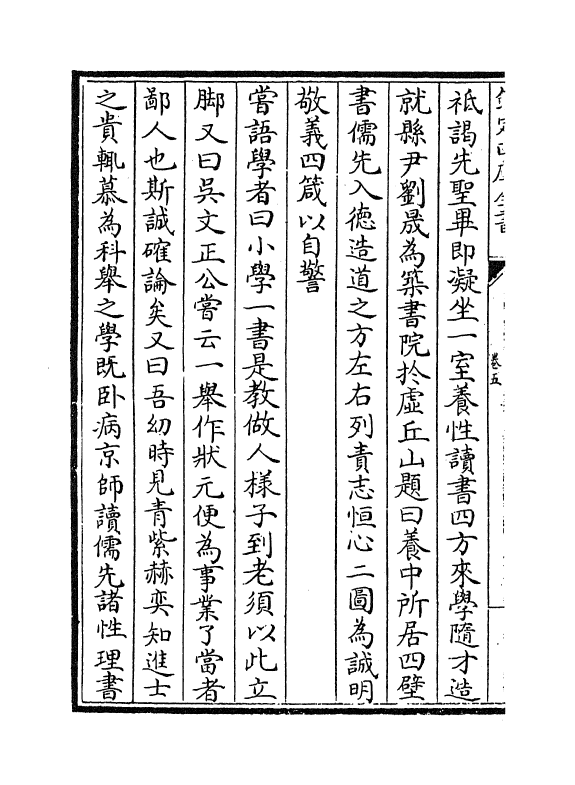 卷五
祗謁先聖畢即凝坐一室養性讀書四方來學隨才造
就縣尹劉晟為築書院扵虛丘山題曰養中所居四壁
書儒先入德造道之方左右列責志恒心二圖為誠明
敬義四箴以自警
嘗語學者曰小學一書是教做人樣子到老須以此立
脚又曰吳文正公嘗云一舉作狀元便為事業了當者
鄙人也斯誠確論矣又曰吾幼時見青紫赫奕知進士
之貴輒慕為科舉之學既卧病京師讀儒先諸性理書